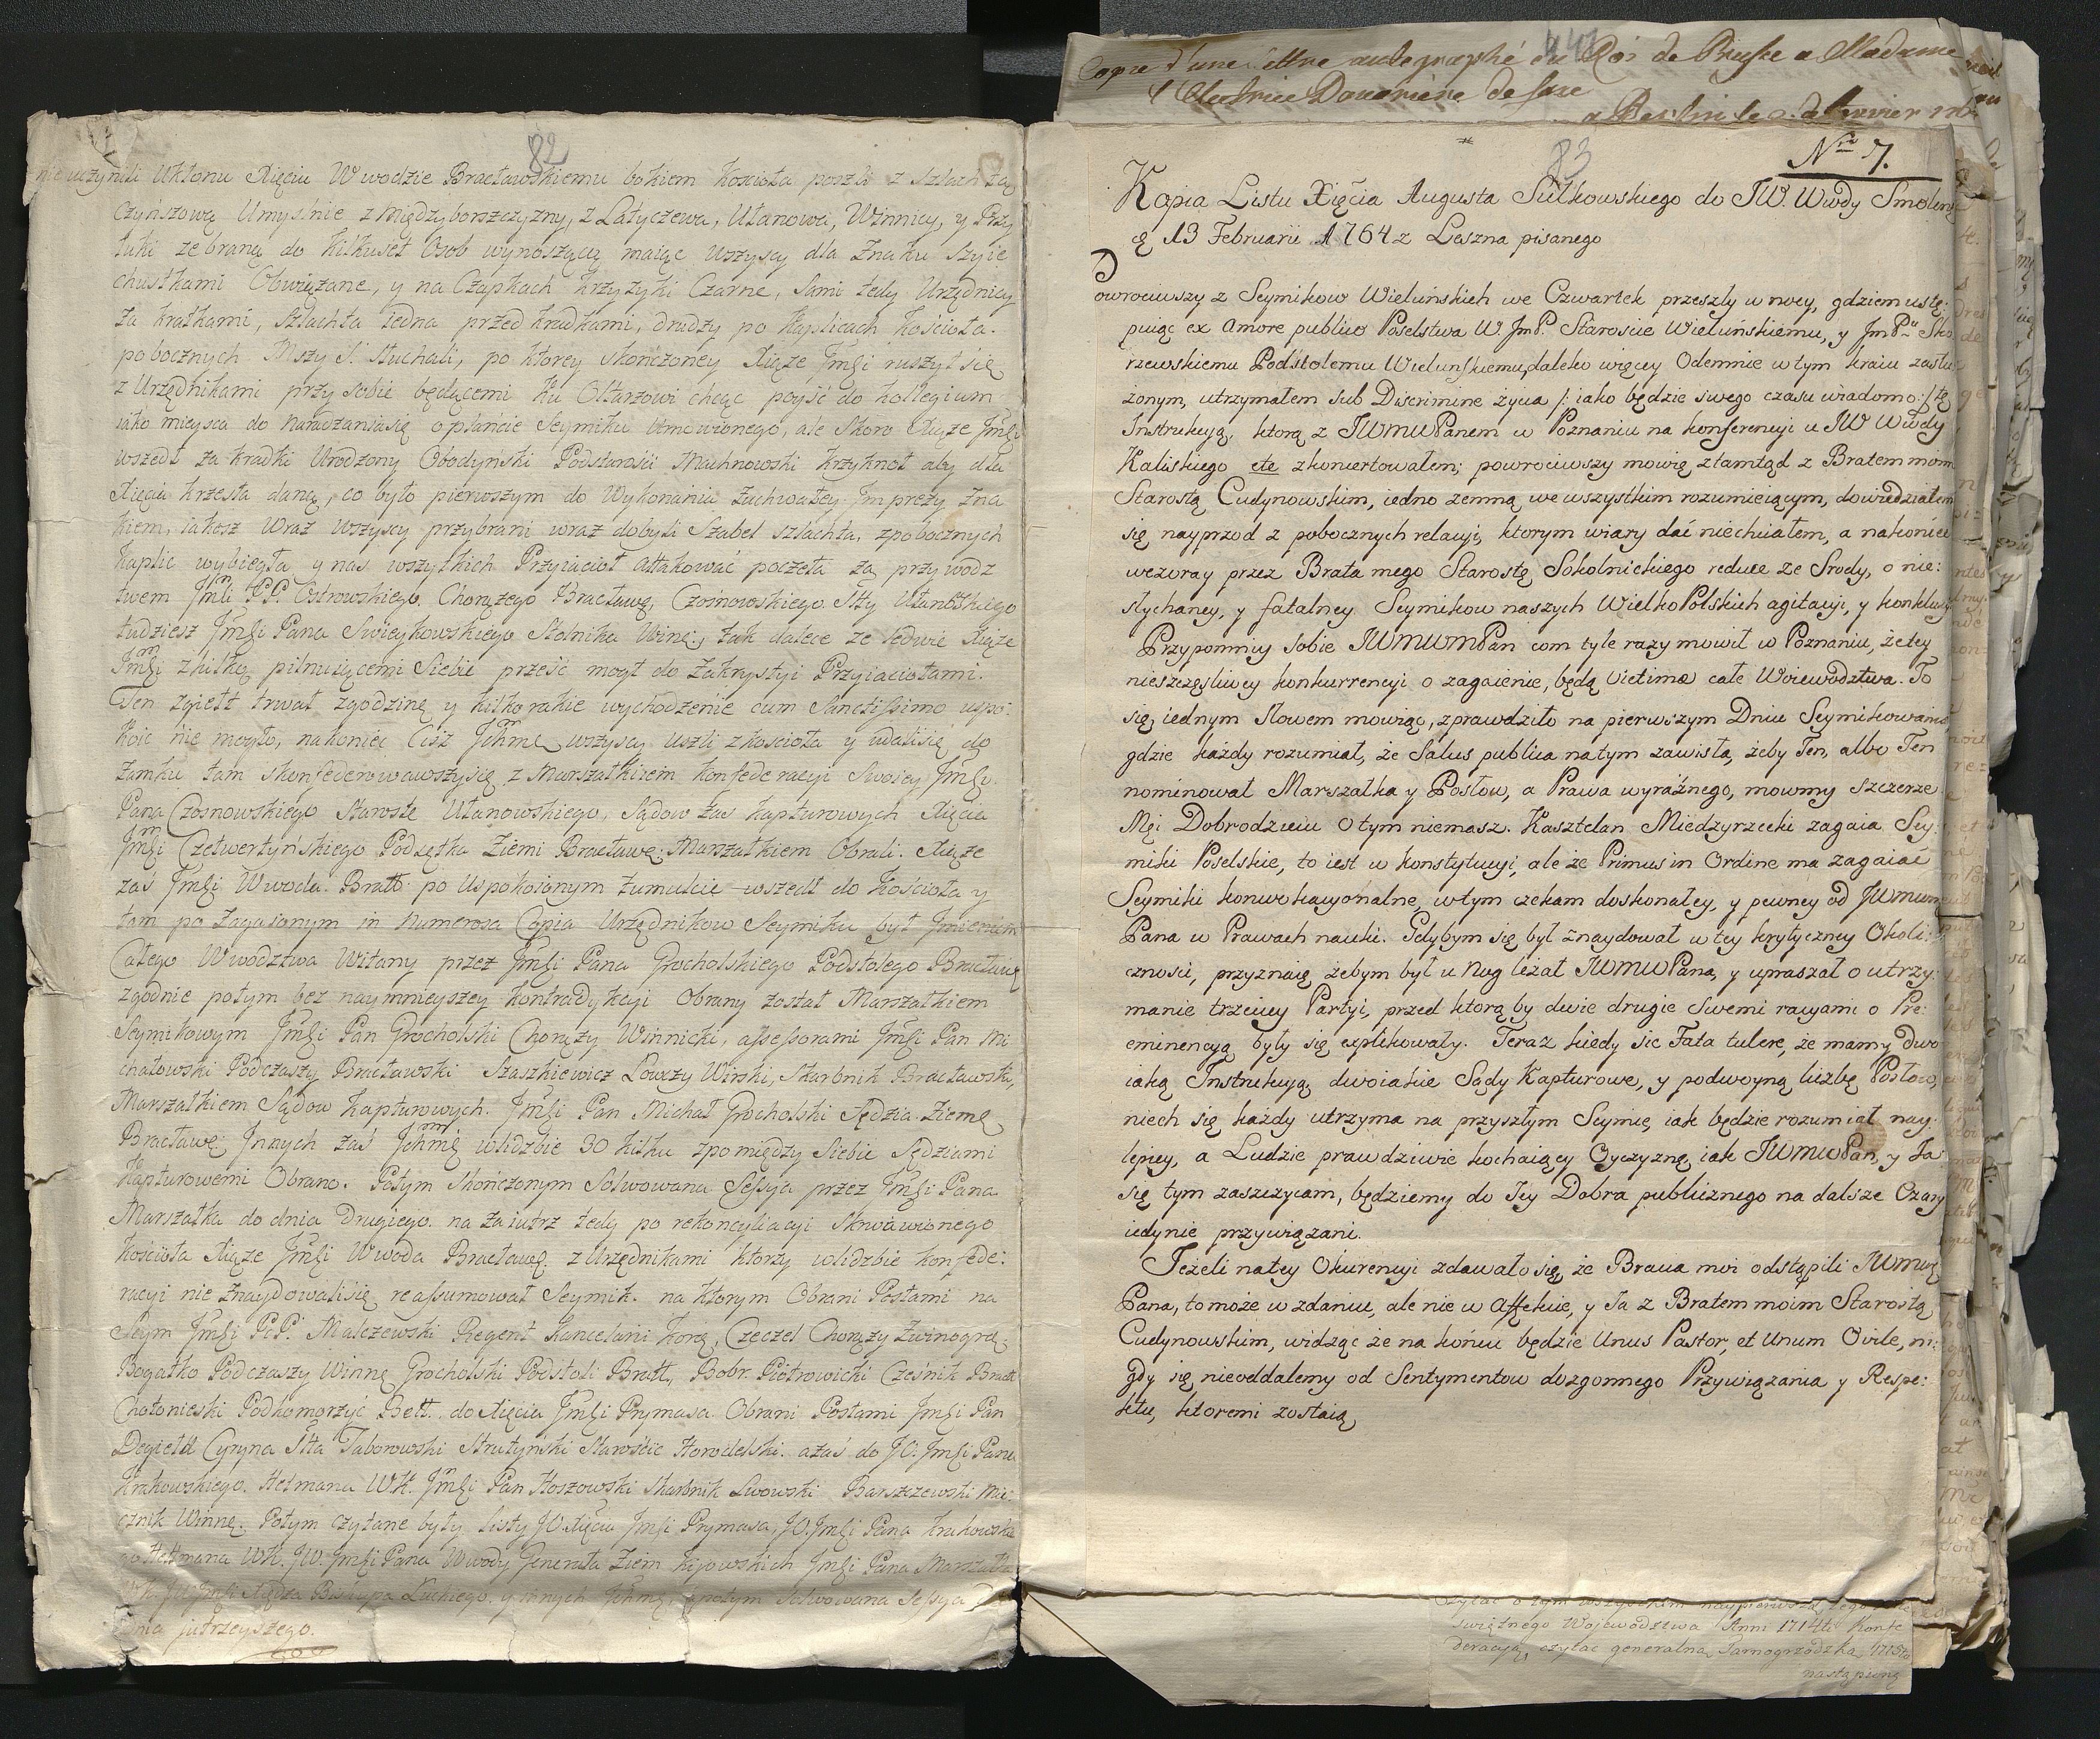 82
nie uczynili Ukłonu Xięciu W wodzie Bracławskiemu bokiem kościoła poszli z Szlachtą
Czynszową Umyslnie z Międzyborszczyzny, z Latyczewa, Ułanowa, Winnicy, y Przy
łuki zebraną do kilkuset Osob wynoszącą maiąc wszyscy dla Znaku szyie
chustkami Obwiązane, y na Czapkach krzyżyki Czarne, Sami tedy Urzędnicy
za kratkami, Szlachta iedna przed kradkami, drudzy po kaplicach kościoła
pobocznych Mszy S. słuchali, po ktorey skończoney Xiąże Jmść ruszył się
z Urzędnikami przy sobie będącemi ku Ołtarzowi chcąc poyść do kollegium
iako mieysca do naradzaniasię o płańcie Seymiku Umowionego, ale Skoro Xiąże Jmść
wszedł za kradki Urodzony Obodyński Podstarości Machnowski krzyknoł aby dla
Xięcia krzesła daną, co było pierwszym do Wykonania Zuchwałey Imprezy Zna
kiem, iakosz Wraz wszyscy przybrani wraz dobyli Szabel szlachta, zpobocznych
kaplic wybiegła y nas wszytkich Przyiacioł attakować poczeła za przywodz
twem Jmći PP. Ostrowskiego Chorążego Bracławg, Czosnowskiego Stty Ułanowskiego
tudziesz Jmści Pana Swieykowskiego Stolnika Wing: tak dalece ze ledwie Xiąże
Jmść z kilką pilnuiącemi Siebie prześć mogł do Zakrystyi Przyiaciołami.
Ten zgiełk trwał zgodzinę y kilkorakie wychodzenie cum Sanctissimo uspo:
koic nie mogło, nakoniec Ciż Jchmć wszyscy uszli z kościoła y udalisię do
Zamku tam skonfederowawszysię z Marszałkiem konfederacyi Swoiey Jmści
Pana Czosnowskiego Staroste Ułanowskiego, Sądow zas kapturowych Xięcia
Jmści Czetwertyńskiego Podsętka Ziemi Bracławg: Marszałkiem Obrali. Xiąże
zaś Jmść W woda Bratt: po Uspokoionym tumulcie wszedł do kościoła y
tam po Zagaionym in Numerosa Copia Urzędnikow Seymiku był Jmieniem
Całego W wodztwa Witany przez Jmści Pana Grocholskiego Podstolego Bracławg
zgodnie potym bez naymnieyszey kontradykcyi Obrany został Marszałkiem
Seymikowym Jmść Pan Grocholski Chorąży Winnicki, assessorami Jmść Pan Mi
chałowski Podczaszy Bracławski Szaszkiewicz Łowczy Wirski, Skarbnik Bracławski,
Marszałkiem Sądow kapturowych Jmść Pan Michał Grocholski Sędzia Ziemg
Bracławg: Jnnych zaś Jchmć wliczbie 30 kilku zpomiędzy Siebie Sędziami
Kapturowemi Obrano. Potym Skończonym Solwowana Sessya przez Jmści Pana
Marszałka do dnia Drugiego. na Zaiutrz tedy po rekoncyliacyi Skrwawionego
kościoła Xiąże Jmść W woda Bracławg. z Urzędnikami ktorzy wliczbie konfede:
racyi nie Znaydowalisię reassumował Seymik. na ktorym Obrani Posłami na
Seym Jmść PP. Malczewski Regent kancelarii korą, Czeczel Chorąży Zwinogrą,
Bogatko Podczaszy Winng Grocholski Podstoli Bratt., Bobr. Piotrowicki Cześnik Bratt
Chołoniewski Podkomorzyć Bełt. do Xięcia Jmści Prymasa Obrani Posłami Jmść Pan
Degield Cyryna Stta Taborowski Strutyński Starościc Horodelski. a zaś do JO. Jmści Pana
Krakowskiego Hetmana WK. Jmść Pan Hoszowski Skarbnik Lwowski Barszczewski Mie
cznik Winng. Potym czytane były listy JO Xięcia Jmści Prymasa, JO. Jmści Pana krakowskie
go Hettmana WK. JW. Jmści Pana W wody Generała Ziem kijowskich Jmści Pana Marszałka
WK. JW Jmści Xiędza Biskupa Łuckiego y innych Jchmć, a potym Solwowana Sessya do
dnia jutrzeyszego.
Copie d'une lettre autographe du Roi de Prusse a Madame
l'Electrice Douariere de Saxe
a Berlin le
83
Nro 7.
Kopia Listu Xięcia Augusta Sułkowskiego do JW. Wwdy Smoleng
ą 13 Februarii 1764 z Leszna pisanego
Powrociwszy z Seymikow Wieluńskich we Czwartek przeszły w nocy, gdziem ustę:
puiąc ex amore publico Poselstwa W JmP. Staroście Wieluńskiemu, y JmPnu Sko
rzewskiemu Podstolemu Wieluńskiemu, daleko więcey Odemnie w tym kraiu zasłu
żonym, utrzymałem sub Discrimine życia /: iako będzie swego czasu wiadomo :/ tę
Instrukcyą, ktorą z JWmWPanem w Poznaniu na konferencyi u JW Wwdy
Kaliskiego etc zkoncertowałem; powrociwszy mowię ztamtąd z Bratem moim
Starostą Cudynowskim, iedno zemną we wszystkim rozumieiącym, dowiedziałem
się nayprzod z pobocznych relacyi, ktorym wiary dać niechciałem, a nakoniec
wczoray przez Brata mego Starostę Sokolnickiego reduce ze Srody, o nie:
słychaney, y fatalney Seymikow naszych WielkoPolskich agitacyi, y konkluzyi
Przypomniy sobie JWmWmPan com tyle razy mowił w Poznaniu, że tey
nieszczęśliwey konkurrencyi o zagaienie, będą victimæ całe Woiewodztwa. To
się iednym słowem mowiąc, zprawdziło na pierwszym Dniu Seymikowania,
gdzie każdy rozumiał, że Salus publica natym zawisła, żeby Ten, albo Ten
nominował Marszałka y Posłow, a Prawa wyraźnego, mowmy szczerze
Mći Dobrodzieiu o tym niemasz. Kasztelan Miedzyrzecki zagaia Sey:
miki Poselskie, to iest w konstytucyi, ale że Primus in Ordine ma zagaiać
Seymiki konwokacyonalne, wtym czekam doskonałey, y pewney od JWmWm
Pana w Prawach nauki. Gdybym się był znaydował w tey krytyczney Okoli:
czności, przyznaię, żebym był u nog leżał JWmWPana, y upraszał o utrzy:
manie trzeciey Partyi, przed ktorąby dwie drugie swemi racyami o Pre:
eminencyą były się explikowały. Teraz kiedy sic Fata tulere, że mamy dwo
iaką Instrukcyą, dwoiakie Sądy Kapturowe, y podwoyną liczbę Posłow,
niech się każdy utrzyma na przyszłym Seymie, iak będzie rozumiał nay:
lepiey, a Ludzie prawdziwie kochaiący Oyczyznę, iak JWmWPan, y Ja
się tym zaszczycam, będziemy do Jey Dobra publicznego na dalsze Czasy
iedynie przywiązani.
Jeżeli natey Okurencyi zdawało się, że Bracia moi odstąpili JWmWg
Pana, to może w zdaniu, ale nie w affekcie, y Ja z Bratem moim Starostą
Cudynowskim, widząc że na końcu będzie Unus Pastor, et Unum Ovile, ni:
gdy się nieoddalemy od Sentymentow dozgonnego Przywiązania y Respe:
ktu, ktoremi zostaię
czytac o tym wszystkim naypierwszą tego
swiętnego Woiewodztwa Anni 1714ti Konfe
deracyą, czytac generalną Tarnogrodzką 1715to
nastąpioną